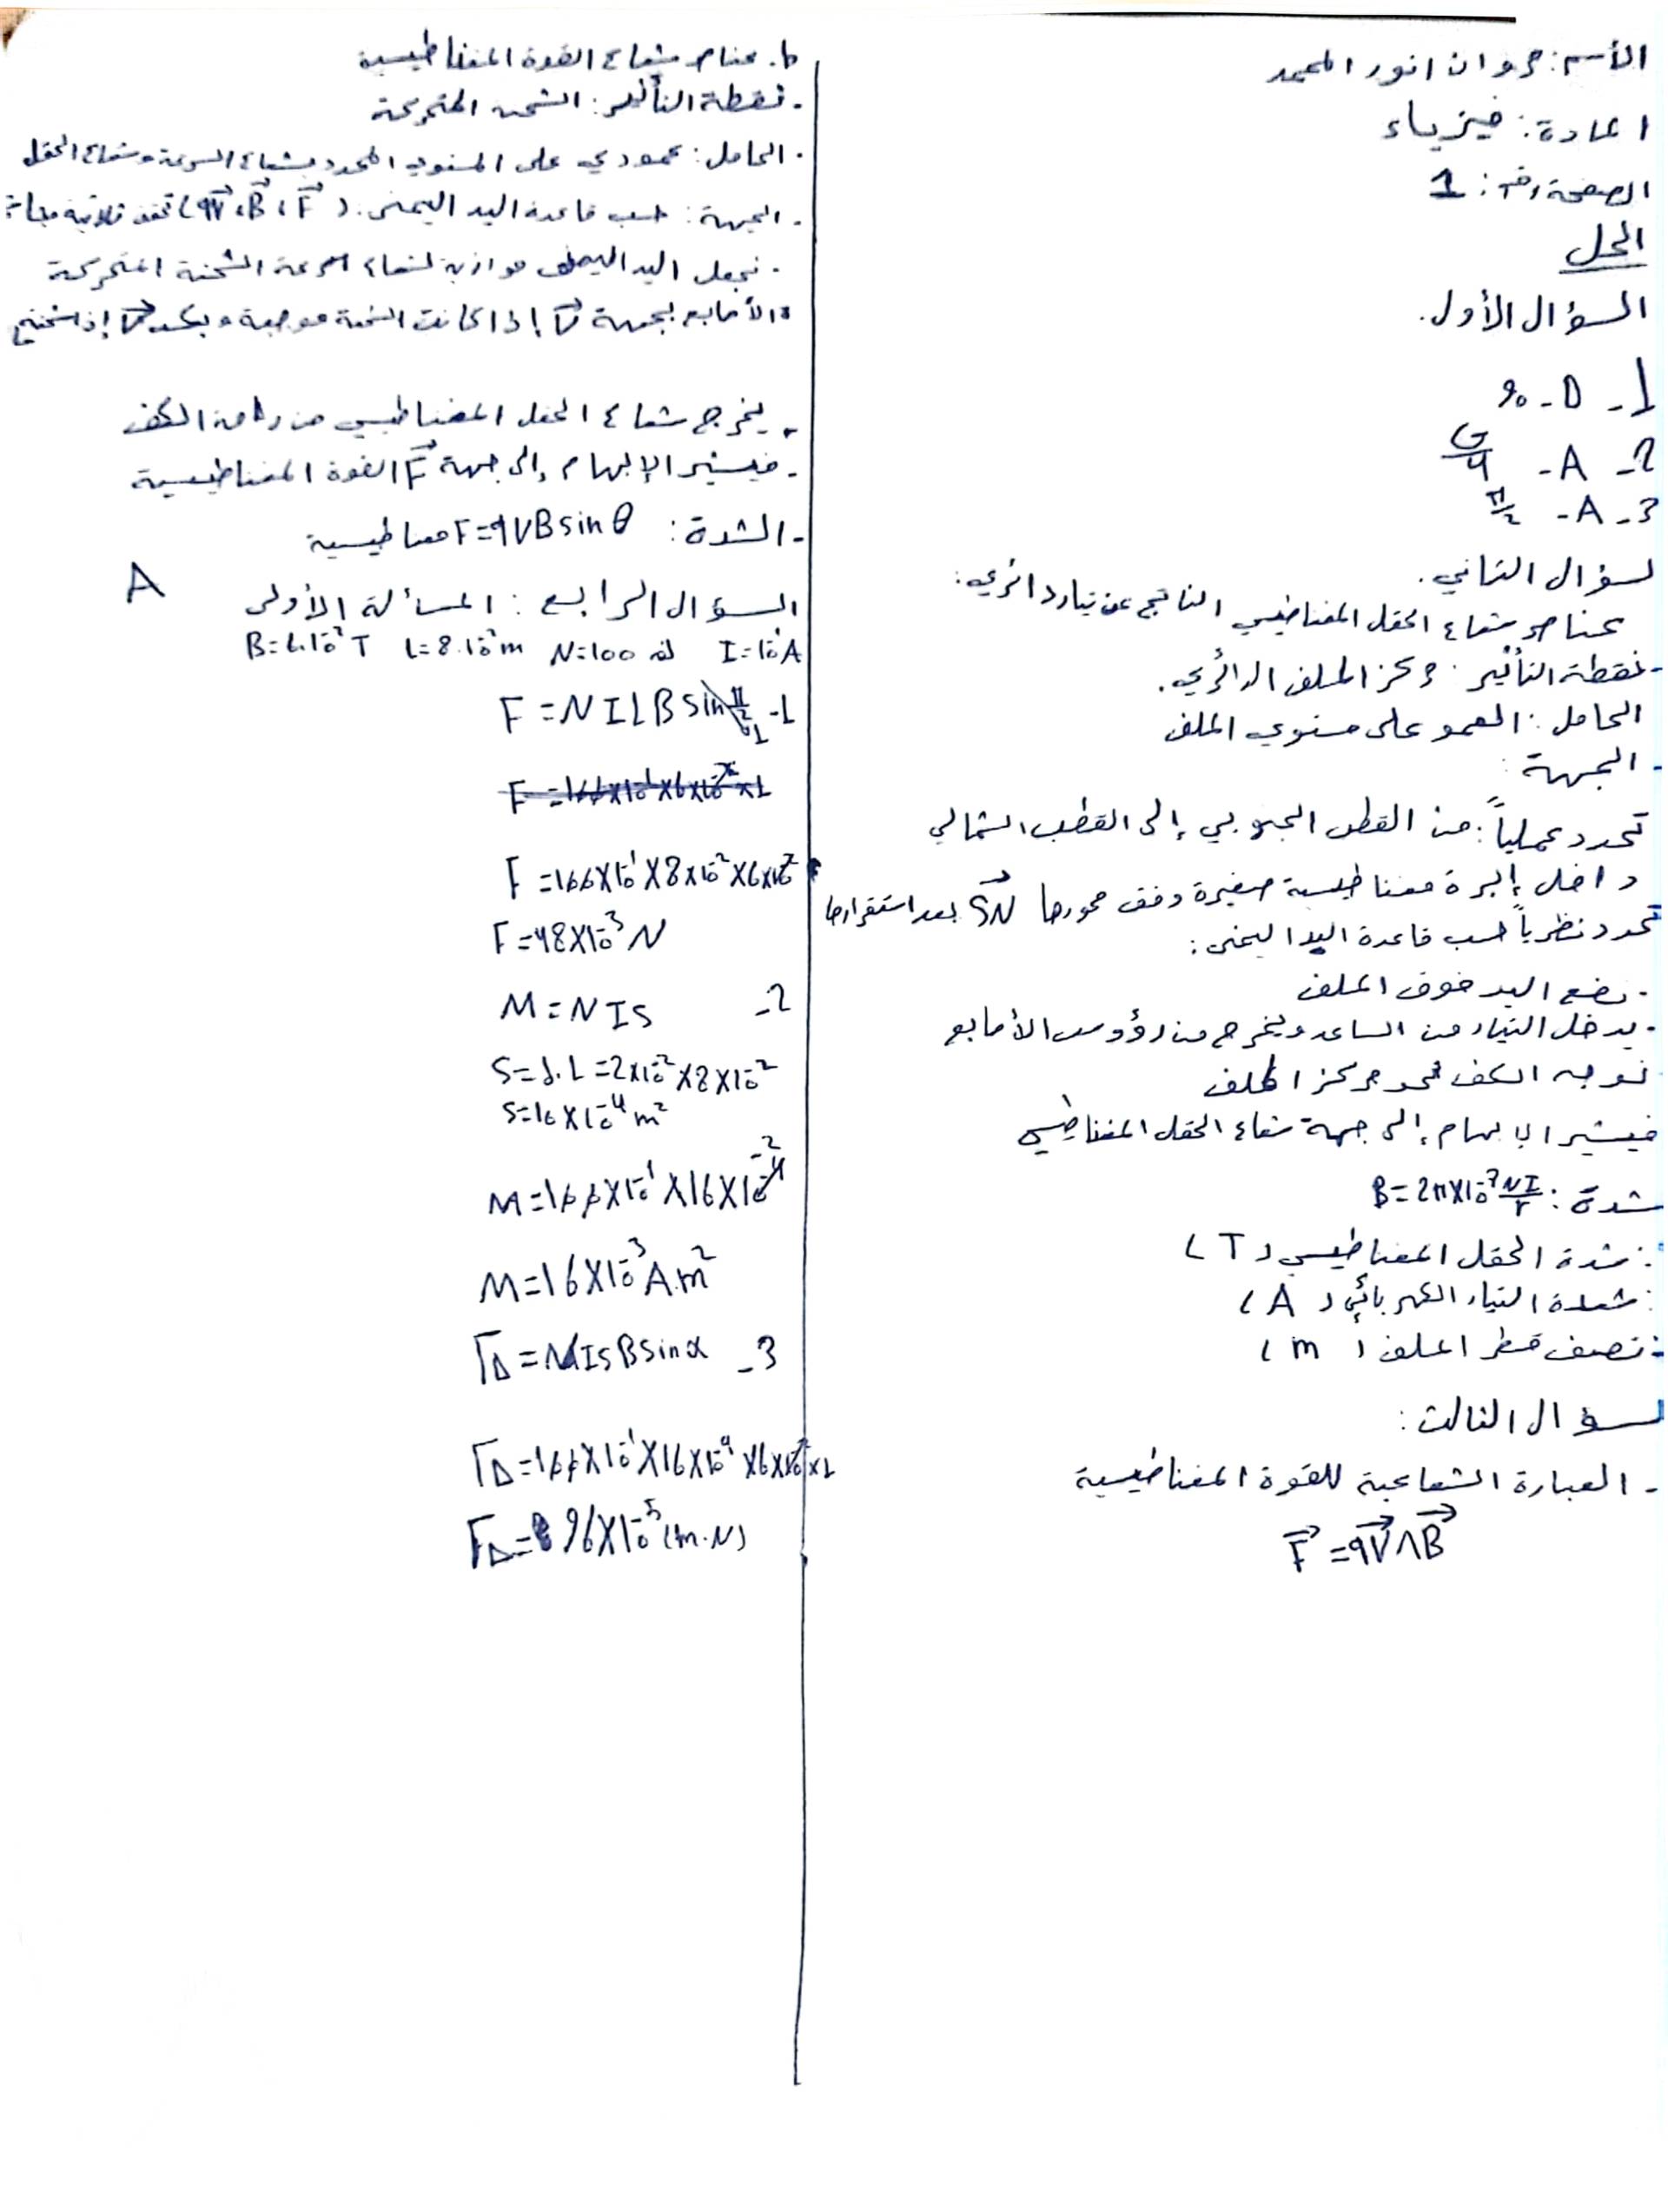 الأسم: مروان انور المحمد
المادة: فيزياء
الصفحة رقم: 1
الحل
السؤال الأول.
1- D - 90
2- A - G/4
3- A - π/2
لسؤال الثاني.
عناصر شعاع الحقل المغناطيسي الناتج عن تيار دائري:
- نقطة التأثير: مركز الملف الدائري.
الحامل: العمو على مستوي الملف
- الجهة:
تحدد عملياً: من القطب الجنوبي إلى القطب الشمالي
داخل إبرة مغناطيسية صغيرة وفق محورها SN بعد استقرارها
تحدد نظرياً حسب قاعدة اليد اليمنى:
- نضع اليد فوق الملف
- يدخل التيار من الساعد ويخرج من رؤوس الأصابع
نوجه الكف نحو مركز الملف
فيشير الإبهام إلى جهة شعاع الحقل المغناطيسي
شدة: B=2π×10⁻⁷ NI/r
: شدة الحقل المغناطيسي (T)
: شدة التيار الكهربائي (A)
: نصف قطر الملف (m)
لسؤال الثالث:
- العبارة الشعاعية للقوة المغناطيسية
F⃗ = qV⃗ ∧ B⃗
b. عناصر شعاع القوة المغناطيسية
- نقطة التأثير: الشحنة المتحركة
- الحامل: عمودي على المستوي المحدد بشعاع السرعة وشعاع الحقل
- الجهة: حسب قاعدة اليد اليمنى: (qV⃗، B⃗، F⃗) تحقق ثلاثية مباشرة
- نجعل اليد اليمنى موازية لشعاع سرعة الشحنة المتحركة
والأصابع بجهة V⃗ إذا كانت الشحنة موجبة وبعكس V⃗ إذا
- يخرج شعاع الحقل المغناطيسي من راحة الكف
- فيشير الإبهام إلى جهة F⃗ القوة المغناطيسية
- الشدة: F=qVB sin θ مغناطيسية
A
السؤال الرابع: المسألة الأولى
I=10⁻¹A N=100 لفة L=8.10⁻²m B=6.10⁻²T
1- F = NILB sin π/2 1
F = 100×10⁻¹×8×10⁻²×6×10⁻²
F = 48×10⁻³ N
2- M = NIS
S=d.L=2×10⁻²×8×10⁻²
S=16×10⁻⁴ m²
M=100×10⁻¹×16×10⁻⁴ -2
M=16×10⁻³ A.m²
3- ΓΔ = NISB sin α
ΓΔ = 100×10⁻¹×16×10⁻⁴×6×10⁻²×1
ΓΔ = 96×10⁻⁵ (m.N)